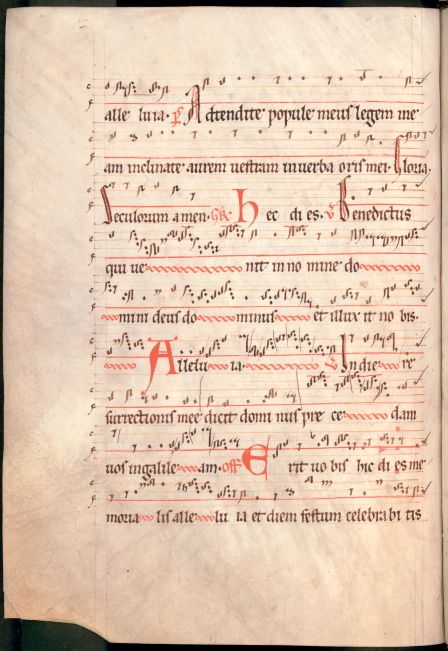 alle luia. Ps Adtendite popule meus legem me
am inclinate aurem vestram in verba oris mei. Gloria.
Seculorum amen. Gr. Hec dies. V Benedictus
qui ve nit in no mine do
mini deus do minus et illux it no bis.
Allelu ia. V In die re
surrectionis mee dicit domi nus pre ce dam
vos in galile am. Off E rit vo bis hic di es me
moria lis alle lu ia et diem festum celebrabi tis